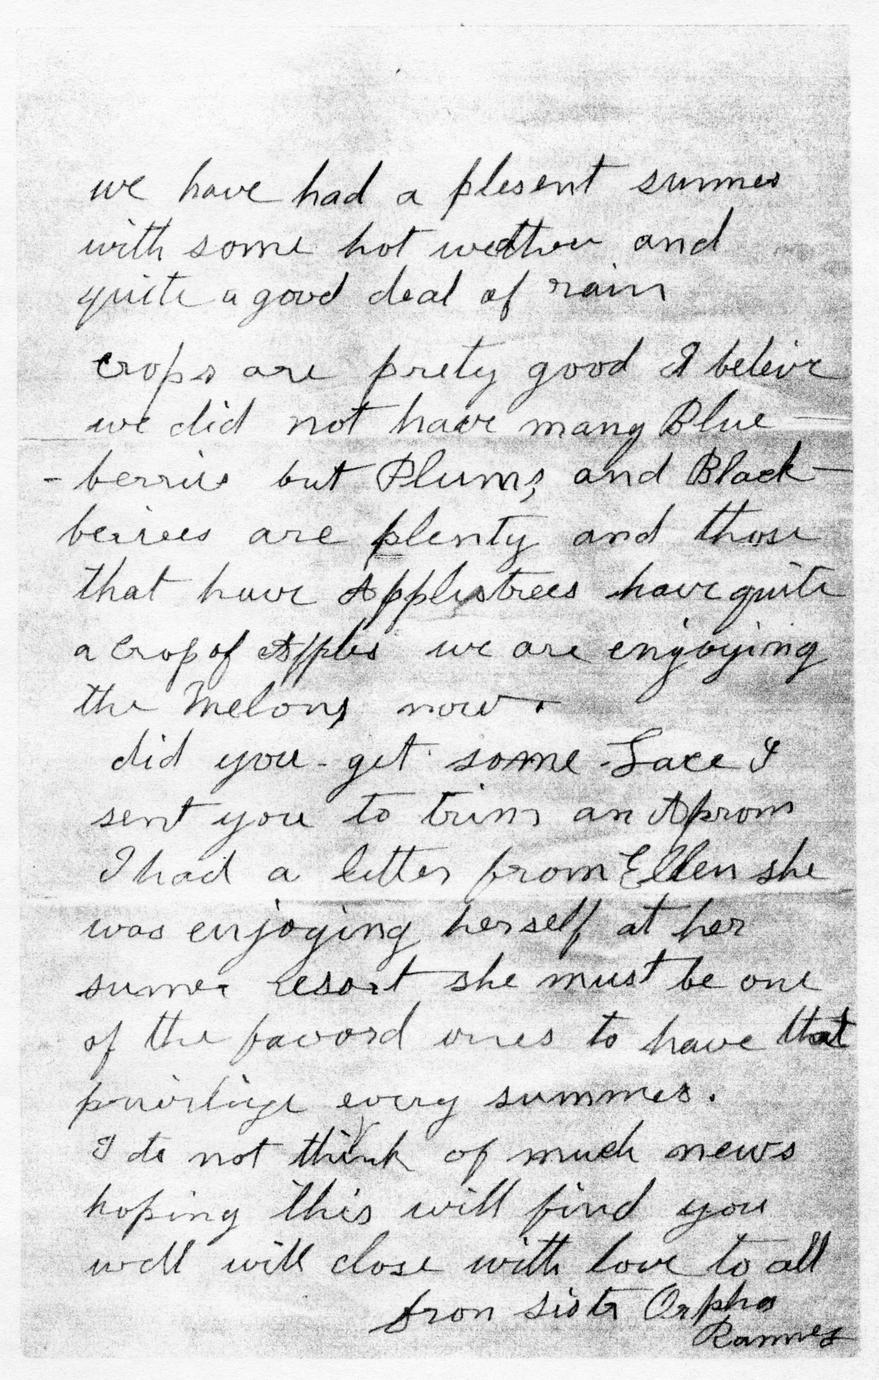 we have had a plesent summer
with some hot wedther and
quite a good deal of rain
crops are prety good I beleive
we did not have many Blue
- berries but Plums, and Black -
beirees are plenty and those
that have Applestrees have quite
a Crop of Apples we are engoying
the Melons now.
did you get some Lace I
sent you to trim an Aprom
I had a letter from Ellen she
was enjoying herself at her
sumer resort she must be one
of the favord ones to have that
privirlige every summer.
I do not think of much news
hoping this will find you
well will close with love to all
from sister Orpha